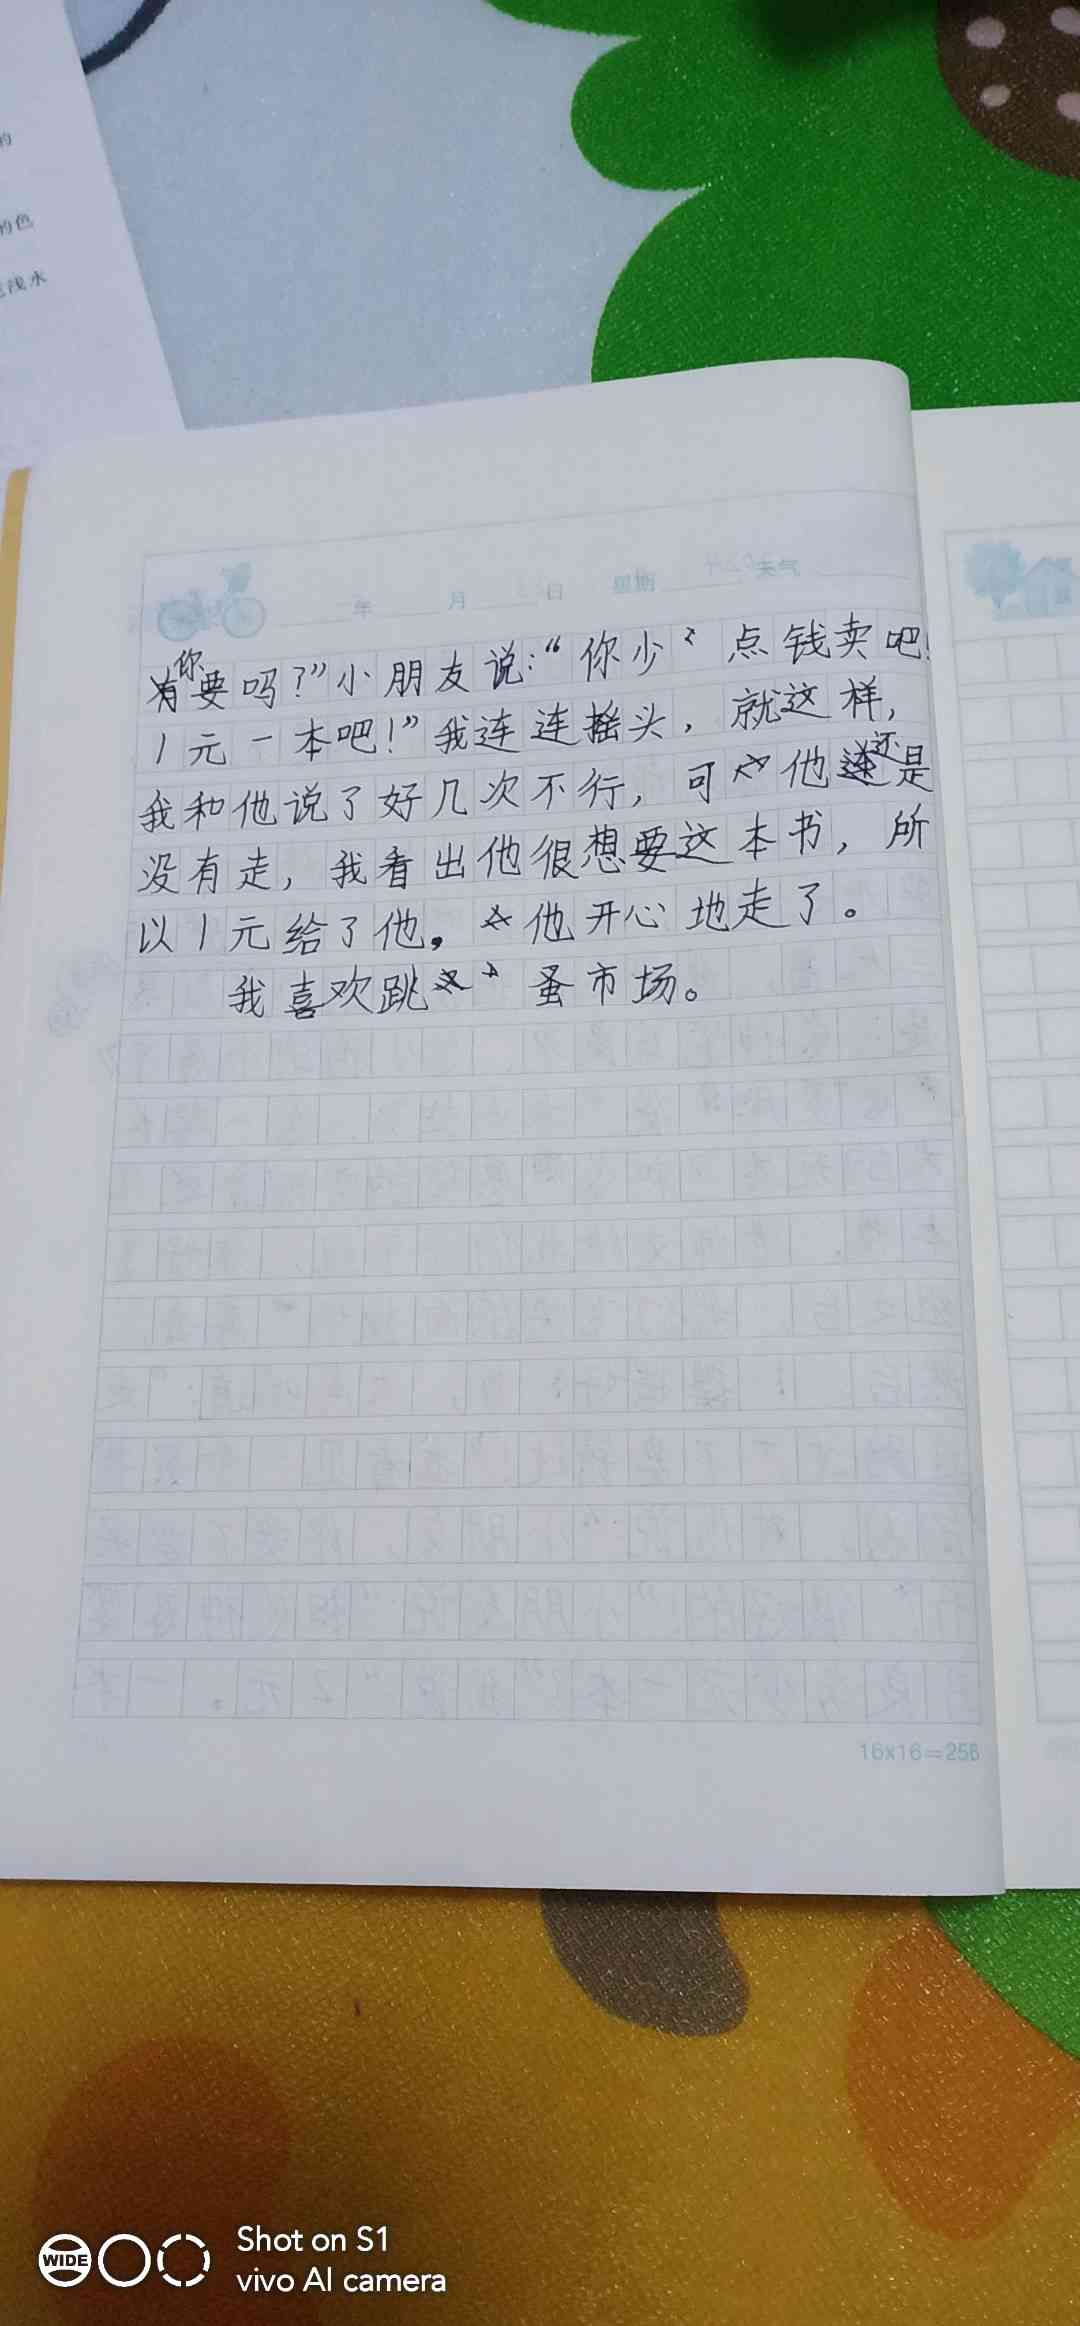 的
的色
浅水
年 月 日 星期 天气
你要吗？”小朋友说：“你少点钱卖吧！
1元一本吧！”我连连摇头，就这样，
我和他说了好几次不行，可他还是
没有走，我看出他很想要这本书，所
以1元给了他，他开心地走了。
我喜欢跳蚤市场。
16x16=256
WIDE
Shot on S1
vivo AI camera